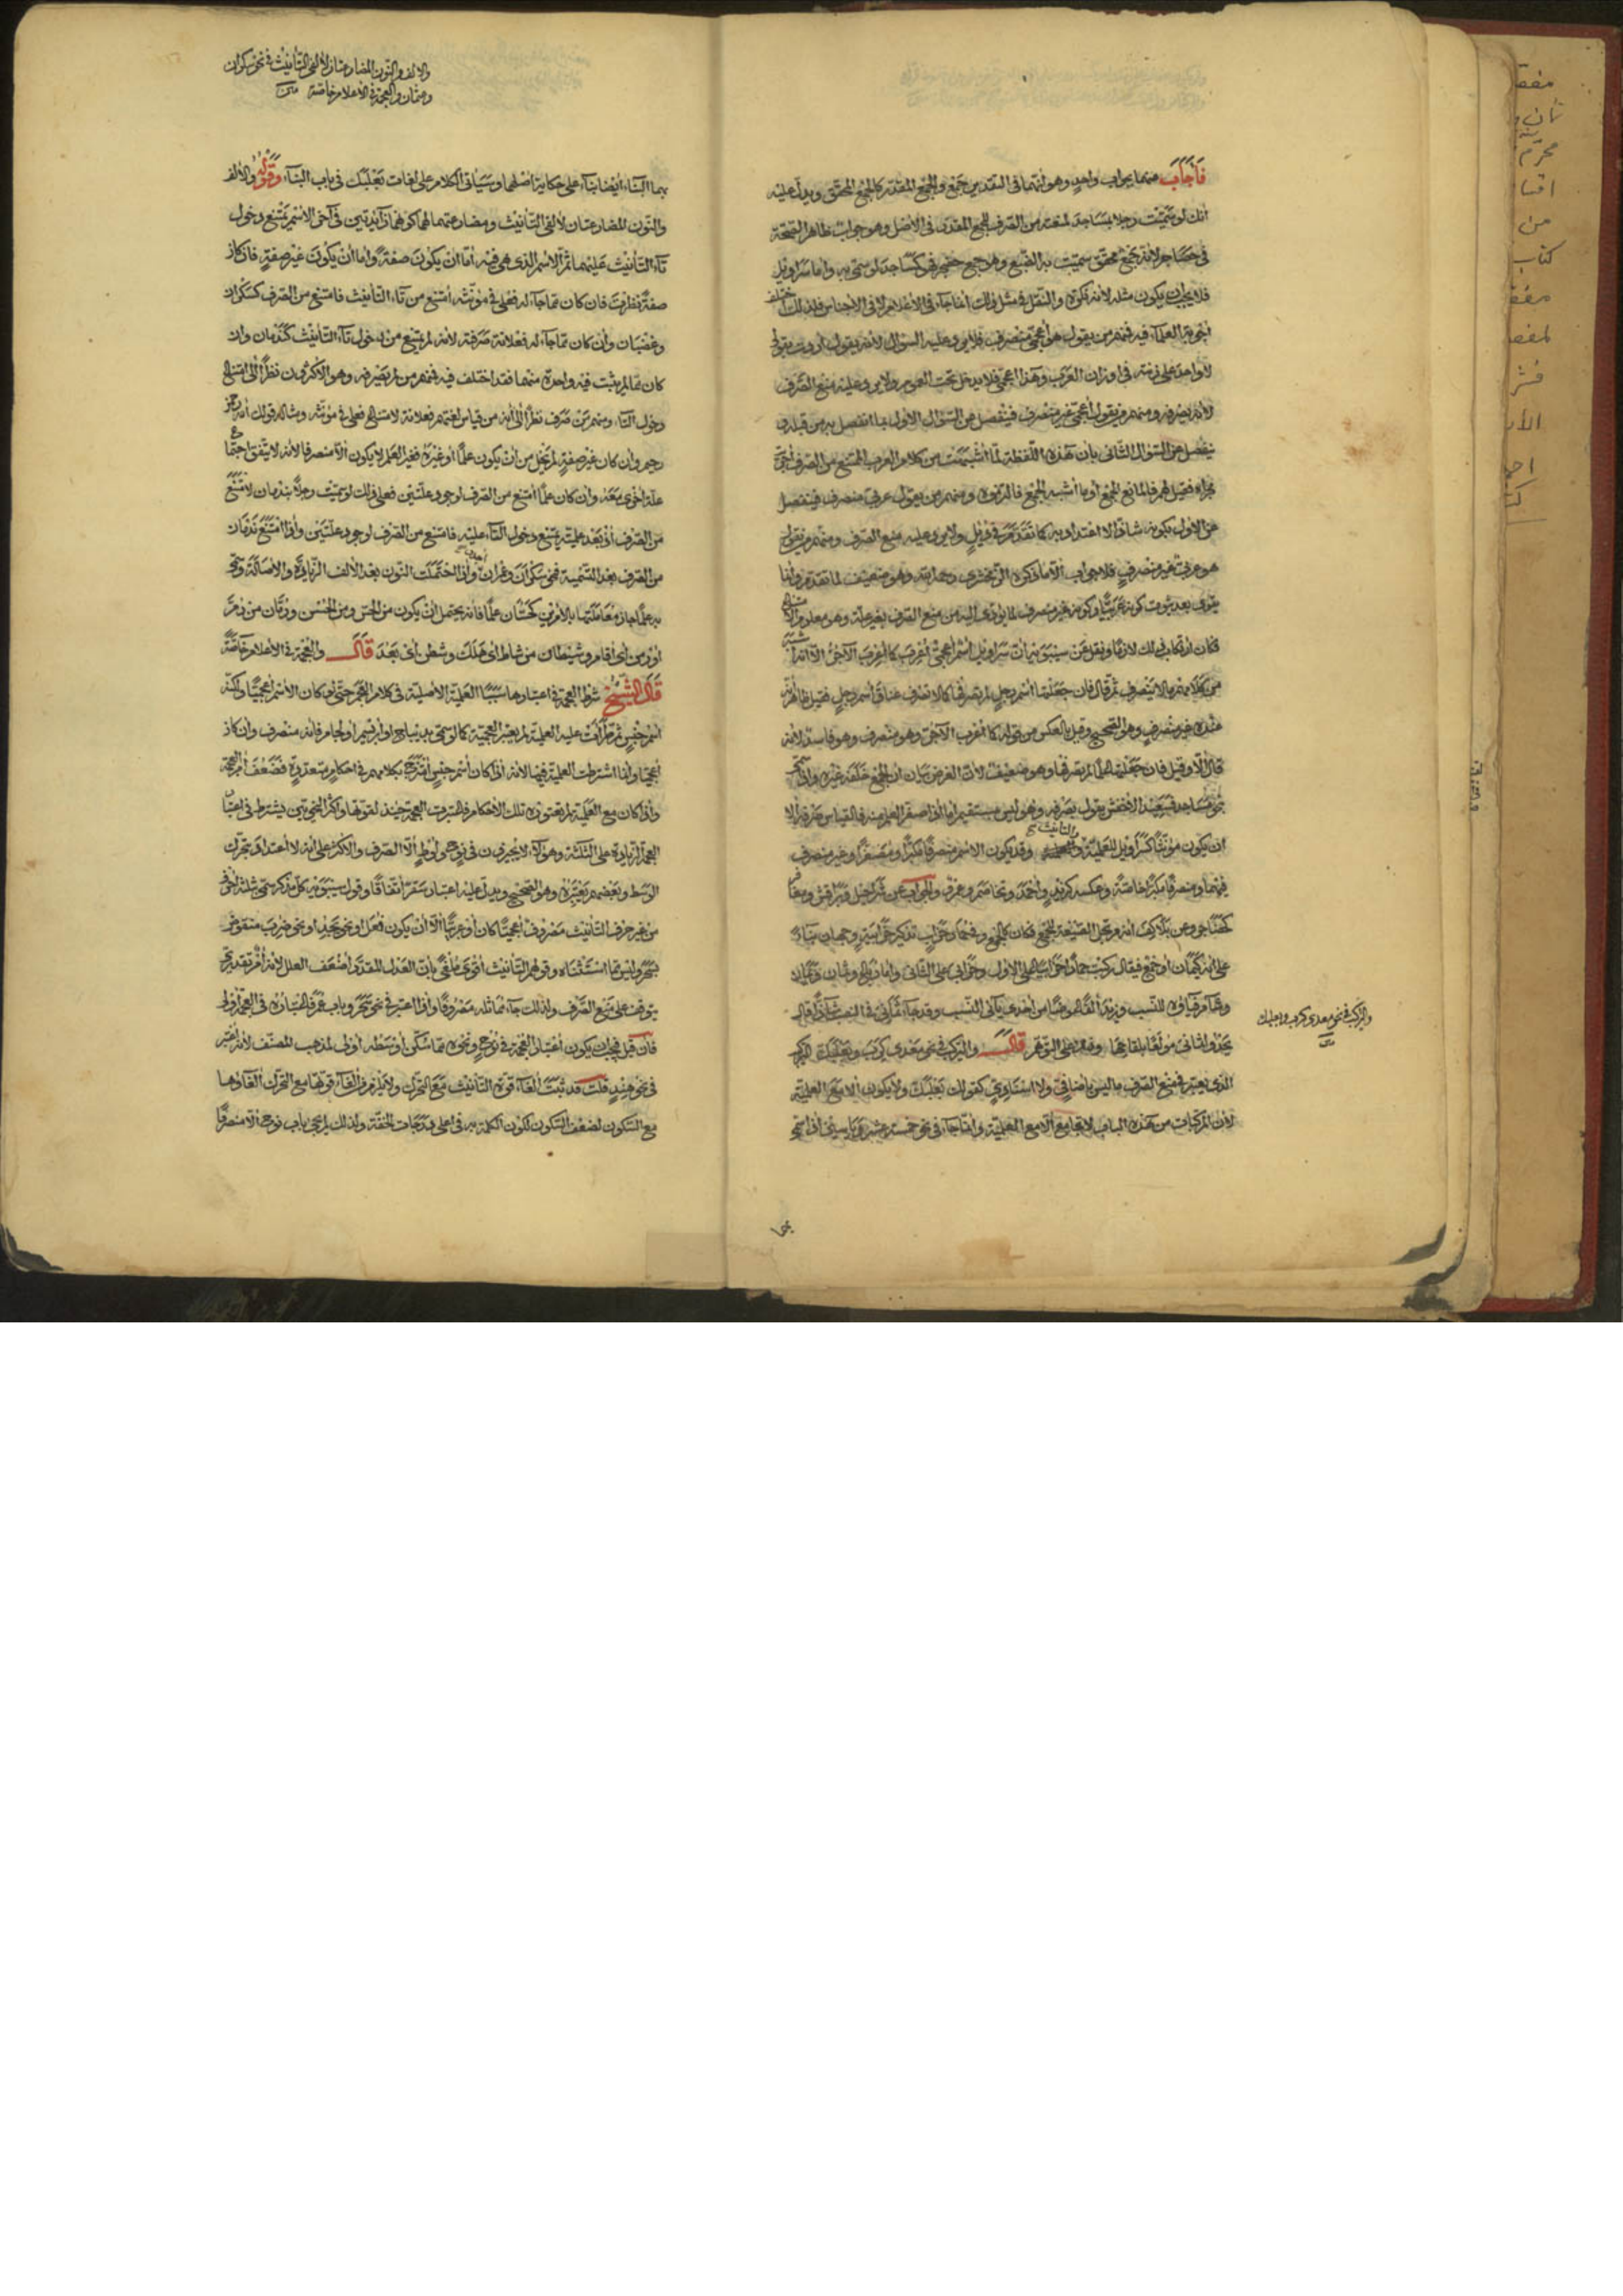 فأجاب عنهما بجواب واحد وهو أنهما في التقدير جمع والجمع المقدر كالجمع المحقق ويدل عليه
أنك لو سميت رجلا بمساجد لمنعته من الصرف للجمع المقدر في الأصل وهو جواب ظاهر الصحة
في حضاجر لأنه جمع محقق سميت به الضبع وهو جمع حضجر فهو كمساجد لو سمي به وأما سراويل
فلا يجب أن يكون مثله لأنه نكرة والنقل في مثل ذلك إنما جاء في الأعلام لا في الأجناس فلذلك اختلف
أجوبة العلماء فيه فمنهم من يقول هو أعجمي منصرف فلا يرد عليه السؤال لأنه يقول أردت بقولي
لا واحد على زنته في أوزان العرب وهذا أعجمي فلا يدخل تحت العموم ولا يرد عليه منع الصرف
لأنه يصرفه ومنهم من يقول أعجمي غير منصرف فينفصل عن السؤال الأول بما انفصل به من قبله و
ينفصل عن السؤال الثاني بأن هذه اللفظة لما أشبهت من كلام العرب الممتنع من الصرف أجري
مجراه فقيل لهم فالمانع الجمع أو ما أشبه الجمع فالتزموه ومنهم من يقول عربي منصرف فينفصل
عن الأول بكونه شاذا لا اعتداد به كما تقدم ولا يرد عليه منع الصرف ومنهم من يقول
هو عربي غير منصرف فلا جواب إلا ما ذكره الزمخشري رحمه الله وهو ضعيف لما تقدم وإنما
يقوى بعد ثبوت كونه عربيا وكونه غير منصرف لما يؤدي إليه من منع الصرف بغير علة وهو معلوم
فكان ارتكاب ذلك لازما ونقل عن سيبويه أن سراويل اسم أعجمي أعرب كما أعرب الآجر إلا أنه أشبه
من كلامهم ما لا ينصرف ثم قال فإن جعلتها اسم رجل لم تصرفها كما لا تصرف عناق اسم رجل فقيل ظاهره أنه
عنده غير منصرف وهو الصحيح وقيل بالعكس من قوله كما أعرب الآجر وهو منصرف وهو فاسد لأنه
قال إلا وقيل فإن جعلتها علما لم تصرفها وهو ضعيف لأن الغرض بيان أن الجمع خلفه غيره وإذا
نحو مساجد فسعيد الأخفش يقول بصرفه وهو ليس بمستقيم أما إذا صغر العلم منه فالقياس صرفه إلا
أن يكون مؤنثا كسراويل للعلمية والتأنيث وقد يكون الاسم منصرفا مكبرا ومصغرا وغير منصرف
فيهما ومنصرفا مكبرا خاصة وعكسه كزيد وأحمد وتحاضر وعمر والجواب عن شراحيل
على أنه كيمان أو جمع فيقال ركبت على الأول على الثاني وأما رباع وثمان ويمان
وشآم فياؤه للنسب وزيد ألفا عوضا من إحدى يائي النسب وقد جاء ثماني في النصب شاذا قال
يحدو ثماني مولعا بلقاحها وقيل على التوهم قال والتركيب في نحو معدي كرب وبعلبك التركيب
الذي يعتبر في منع الصرف ما ليس بإضافي ولا إسنادي كقولك بعلبك ولا يكون إلا مع العلمية
لأن المركبات من هذه الباب لا تجامع إلا مع العلمية وإنما جاء في نحو خمسة عشر
والتركيب في نحو معدي كرب وبعلبك
متن
والألف والنون المضارعتان لألفي التأنيث في نحو سكران
وعثمان والعجمة في الأعلام خاصة متن
بهما البناء أيضا بناء على حكاية أصلهما وسيأتي الكلام على لغات بعلبك في باب البناء وقوله والألف
والنون المضارعتان لألفي التأنيث ومضارعتهما لهما كونهما زائدتين في آخر الاسم يمتنع دخول
تاء التأنيث عليهما ثم الاسم الذي هي فيه إما أن يكون صفة وإما أن يكون غير صفة فإن كان
صفة نظرت فإن كان مما جاء له فعلى في مؤنثه امتنع من تاء التأنيث فامتنع من الصرف كسكران
وغضبان وإن كان مما جاء له فعلانة صرفته لأنه لم يمتنع من دخول تاء التأنيث كندمان وإن
كان مما لم يثبت فيه واحدة منهما فقد اختلف فيه فمنهم من لم يصرفه وهو الأكثرون نظرا إلى امتناع
دخول التاء ومنهم من صرف نظرا إلى أنه من قياس لغتهم فعلانة لامتناع فعلى في مؤنثه ومثاله قولك الله رحمن
رحيم وإن كان غير صفة لم يخل من أن يكون علما أو غيره فغير العلم لا يكون إلا منصرفا لأنه لا يتفق اجتماع
علة أخرى معه وإن كان علما امتنع من الصرف لوجود علتين فعلى ذلك لو سميت رجلا بندمان لامتنع
من الصرف إذ بعد علميته يمتنع دخول التاء عليه فامتنع من الصرف لوجود علتين وإذا امتنع ندمان
من الصرف بعد التسمية فنحو سكران وعمران أجدر وإذا احتملت النون بعد الألف الزيادة والأصالة وسمي
به علما جاز معاملتها بالأمرين كحسان علما فإنه يحتمل أن يكون من الحس ومن الحسن ورمان من رم
أو رمن أي أقام وشيطان من شاط أي هلك وشطن أي بعد قال والعجمة في الأعلام خاصة
قال الشيخ شرط العجمة في اعتبارها سببا العلمية الأصلية في كلام العجم حتى لو كان الاسم أعجميا ولكنه
اسم جنس ثم طرأت عليه العلمية لم يعتبر العجمية كما لو سمي بديباج أو إبريسم أو لجام فإنه منصرف وإن كان
أعجميا وإنما اشترطت العلمية فيها لأنه إذا كان اسم جنس امتزج بكلامهم في أحكام متعددة فضعف أمر العجمة
وإذا كان مع العلمية لم تعتوره تلك الأحكام فاعتبرت العجمة حينئذ لقوتها وأكثر النحويين يشترط في اعتبار
العجمة الزيادة على الثلاثة وهؤلاء لا يجيزون في نوح ولوط إلا الصرف والأكثر على أنه لا اعتداد بتحرك
الوسط وبعضهم يعتبره وهو الصحيح ويدل عليه اعتبار سقر اتفاقا وقول سيبويه كل مذكر سمي بثلاثة أحرف
من غير حرف التأنيث مصروف أعجميا كان أو عربيا إلا أن يكون فعل أو نحو يجد أو نحو ضرب منقوض
بسحر وليس مما استثناه وقولهم التأنيث أقوى ملغى بأن العدل المقدر أضعف العلل لأنه أمر تقديري
يتوقف على منع الصرف ولذلك جاء مماثله مصروفا وإذا اعتبر في نحو سحر وباب عمر فاعتباره في العجمة أولى
فإن قيل فيجب أن يكون اعتبار العجمة في نوح ونحوه مما سكن أوسطه أولى لمذهب المصنف لأنه اعتبر
في نحو هند قلت قد ثبت إلغاء قوة التأنيث مع التحرك ولا يلزم من إلغاء قوتها مع التحرك إلغاؤها
مع السكون لضعف السكون لكون الكلمة به في أعلى درجات الخفة ولذلك لم يجئ باب نوح إلا منصرفا